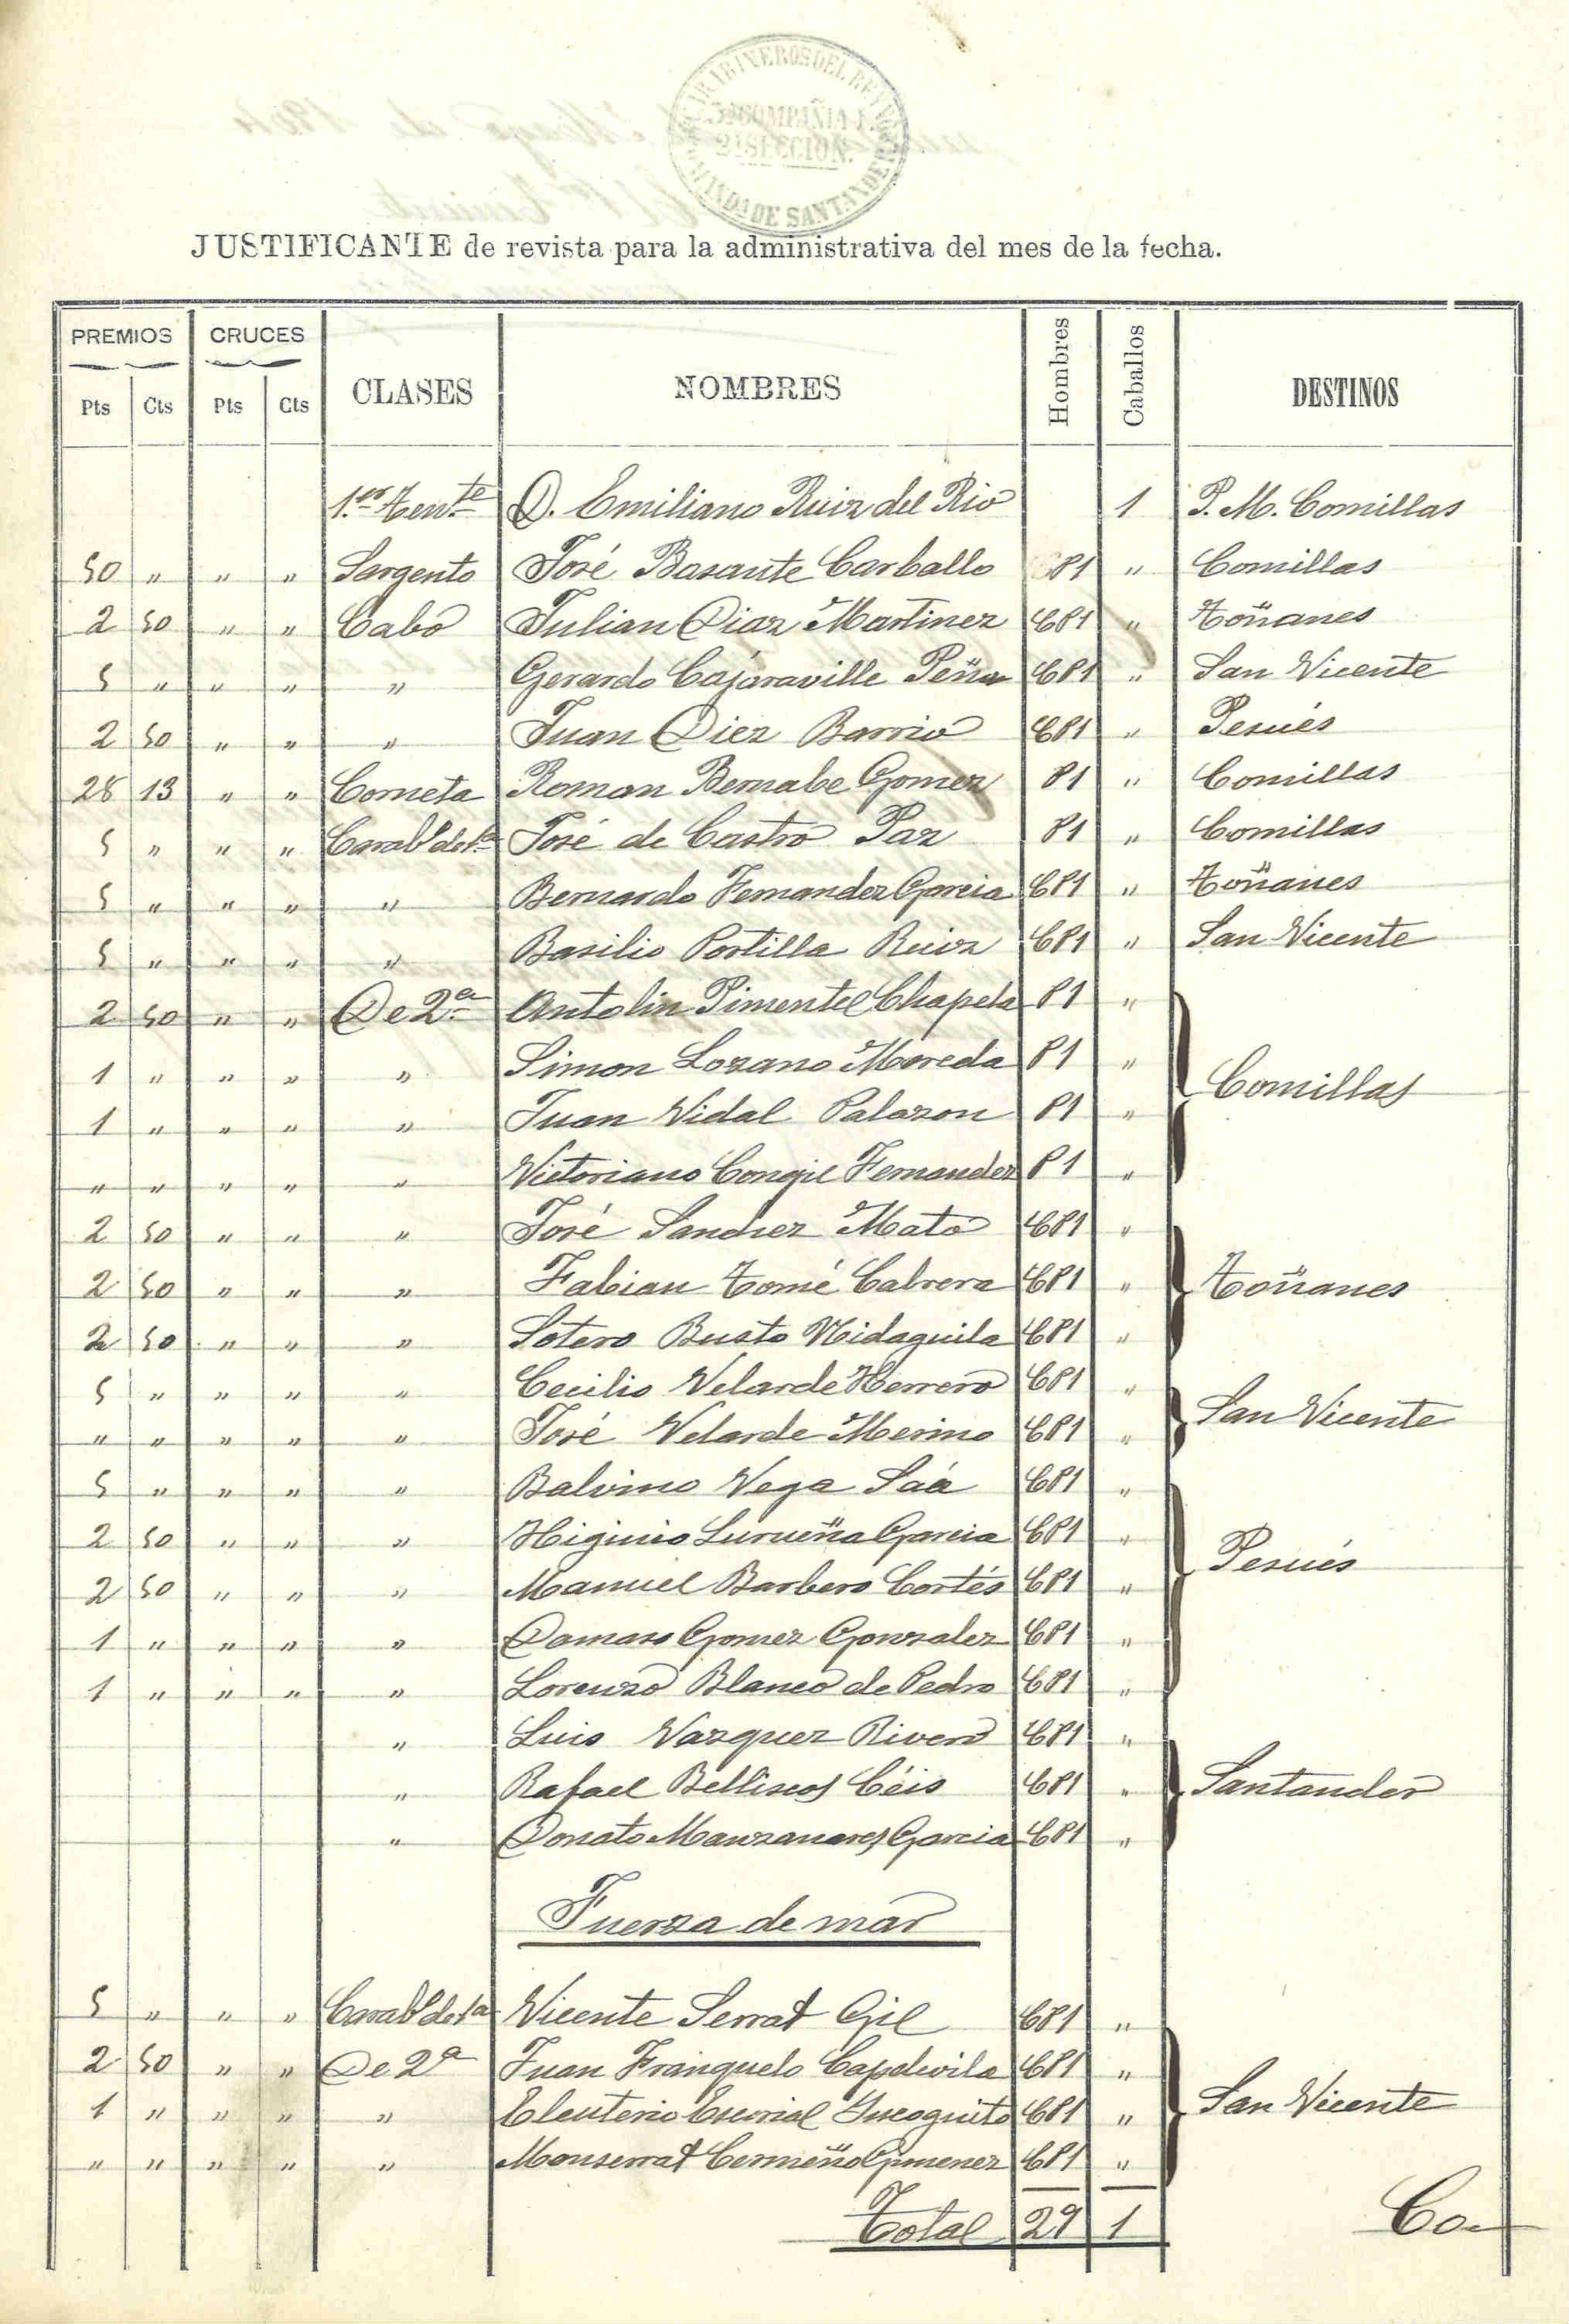 CARABINEROS DEL REINO
COMANDA DE SANTANDER
3ª COMPAÑIA
2ª SECCION.
JUSTIFICANTE de revista para la administrativa del mes de la fecha.
PREMIOS CRUCES CLASES NOMBRES Hombres Caballos DESTINOS
Pts Cts Pts Cts
1.er Ten.te D. Emiliano Ruiz del Rio 1 P. M. Comillas
50 " " " Sargento José Basante Carballo P1 " Comillas
2 50 " " Cabo Julian Diaz Martinez CP1 " Toñanes
5 " " " " Gerardo Cajaraville Peña CP1 " San Vicente
2 50 " " " Juan Diez Barrio CP1 " Pesués
28 13 " " Corneta Roman Bernabe Gomez P1 " Comillas
5 " " " Carabº de 1ª José de Castro Paz P1 " Comillas
5 " " " " Bernardo Fernandez Garcia CP1 " Toñanes
5 " " " " Basilio Portilla Ruiz CP1 " San Vicente
2 50 " " De 2.ª Antolin Pimentel Chapela P1 "
1 " " " " Simon Lozano Moreda P1 " Comillas
1 " " " " Juan Vidal Palazon P1 "
" " " " " Victoriano Congil Fernandez P1 "
2 50 " " " José Sanchez Mato CP1 "
2 50 " " " Fabian Tomé Cabrera CP1 " Toñanes
2 50 " " " Sotero Busto Hidaguila CP1 "
5 " " " " Cecilio Velarde Herrero CP1 " San Vicente
" " " " " José Velarde Merino CP1 "
5 " " " " Balvino Vega Saá CP1 "
2 50 " " " Higinio Surueña Garcia CP1 " Pesués
2 50 " " " Manuel Barbero Cortés CP1 "
1 " " " " Damaso Gomez Gonzalez CP1 "
1 " " " " Lorenzo Blanco de Pedro CP1 "
" Luis Vazquez Rivero CP1 "
" Rafael Belliscos Céis CP1 " Santander
" Donato Manzanares Garcia CP1 "
Fuerza de mar
5 " " " Carabº de 1ª Vicente Serrat Gil CP1 "
2 50 " " De 2ª Juan Franquelo Capdevila CP1 "
1 " " " " Eleuterio Escorial Incognito CP1 " San Vicente
" " " " " Monserrat Cermeño Gimenez CP1 "
Total 29 1 Co-